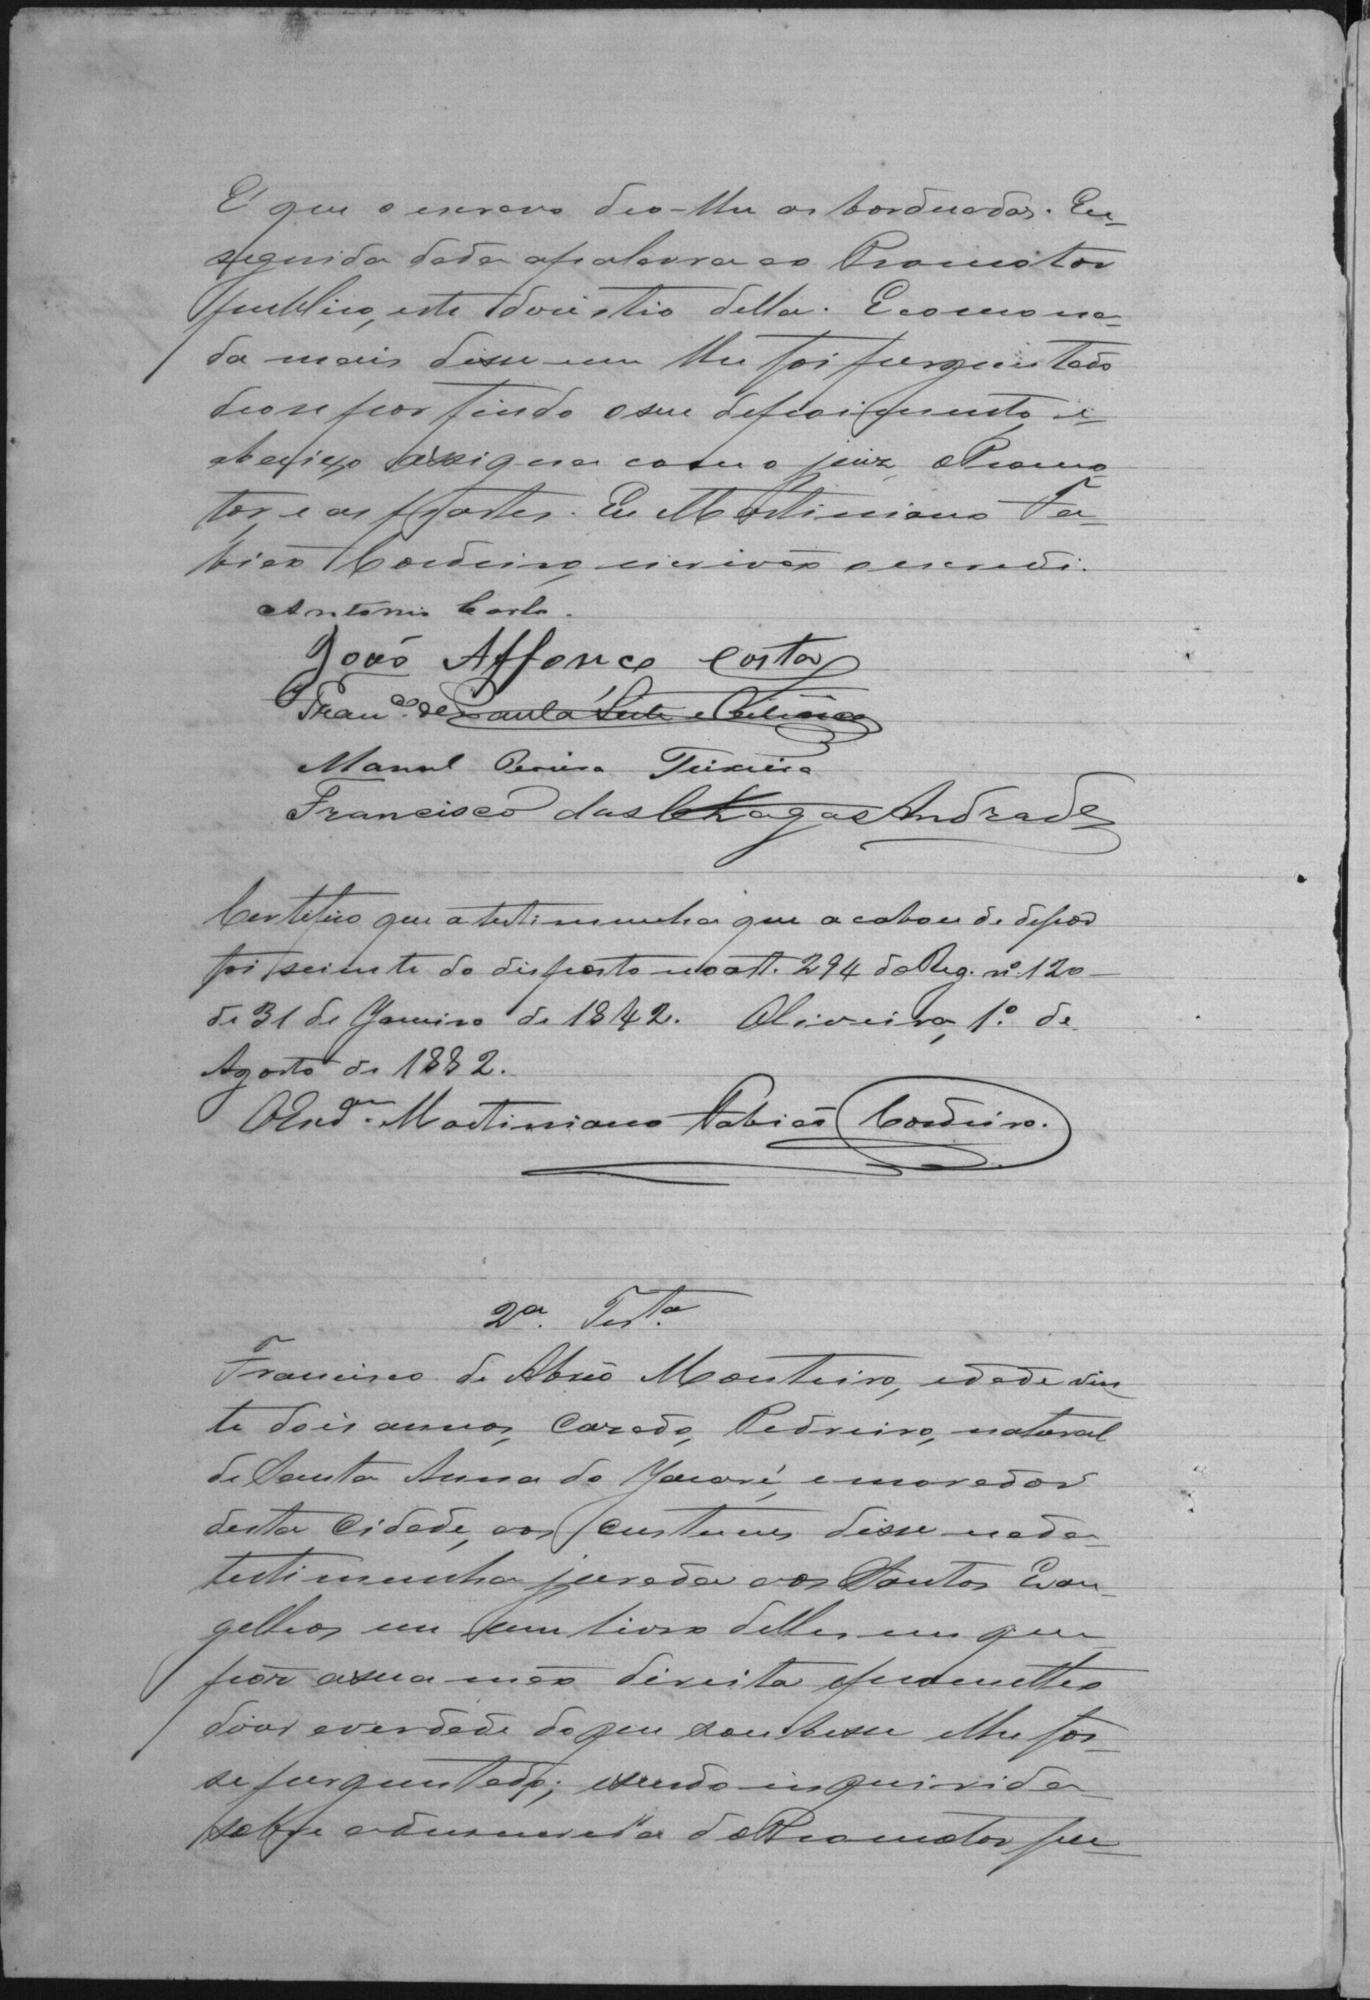 E que o escravo deo-lhe as borduadas. Em
seguida dada apalavra ao Promotor
publico, este desistio della. E como na-
da mais disse nem lhe foi perguntado
deo-se por findo o seu depoimento, e
abaixo assigna com o juiz, o Promo-
tor e as partes. Eu Martiniano Fa-
bião Cordeiro, escrivão o escrevi.
Antonio Carlo.
João Affonço Costa
Franco. de Paula Leite e
Manoel Pereira Teixeira
Francisco das Chagas Andrade
Certifico que a testimunha que acabou de depôr
foi sciente do disposto no art. 294 do Reg. nº 120
de 31 de Janeiro de 1842. Oliveira, 1º. de
Agosto de 1882.
Martiniano Fabião Cordeiro.
2ª. Testa.
Francisco de Abreo Monteiro, edade vin
te dois annos, Casado, Pedreiro, natural
de Santa Anna do Jacaré, e morador
desta Cidade, aos custumes disse nada
testimunha jurada aos Santos Evan-
gelhos em um livro delles em que
pôz a sua mão direita e prometteo
dizer a verdade do que soubesse e lhe fos-
se perguntado; e sendo inquirida
sobre a denuncia do Promotor pu-